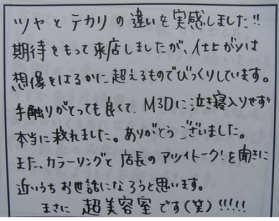 ツヤとテカリの違いを実感しました!!
期待をもって来店しましたが、仕上がりは
想像をはるかに超えるものでびっくりしています。
手触りがとっても良くて、M3Dに泣き寝入りせず
本当に救われました。ありがとうございました。
また、カラーリングと店長のアツイトーク!を聞きに
近いうちお世話になろうと思います。
まさに 超美容室 です(笑)!!!!!